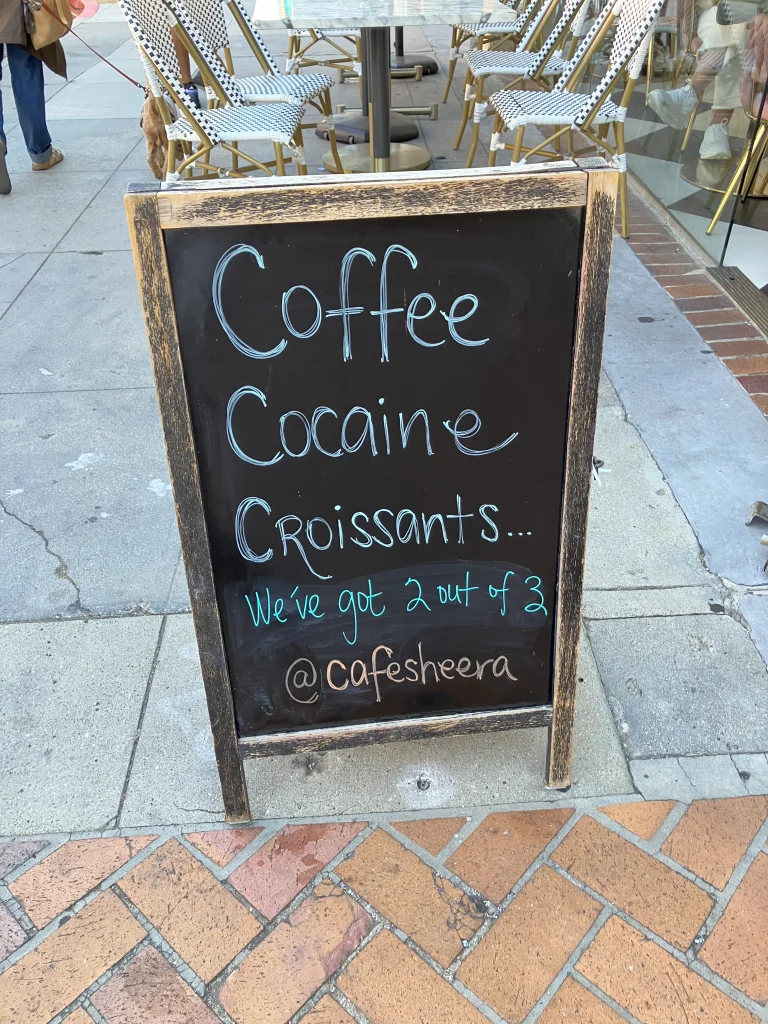 Coffee
Cocaine
CRoissants...
We've got 2 out of 3
@cafesheera